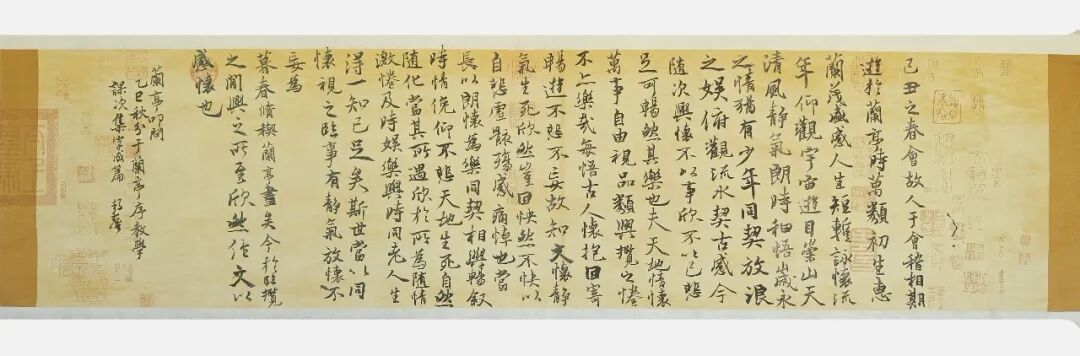 己丑之春會故人于會稽相期
遊於蘭亭時萬類初生惠
蘭茂盛感人生短輒詠懷流
年仰觀宇宙遊目崇山天
清風靜氣朗時相悟歲永
之情猶有少年同契放浪
之娛俯觀流水契古感今
隨次興懷不以事欣不以己悲
足可暢然其樂也夫天地情懷
萬事自由視品類興攬之惓
不上樂哉每悟古人懷抱回寄
暢遊不悲不妄故知文懷靜
氣生死欣然豈回怏然不快以
自悲虛骸殤感痛悼也當
長以朗懷為樂同契相與暢敘
時情俛仰不悲天地生死自然
隨化當其所遇欣於所為隨情
激惓及時娛樂與時同老人生
得一知己足矣斯世當以同
懷視之臨事有靜氣放懷不
妄為
暮春脩稧蘭亭盡矣今於臨攬
之間興之所至欣然作文以
感懷也
蘭亭叩問
乙巳秋分于蘭亭序教學
課次集字成篇